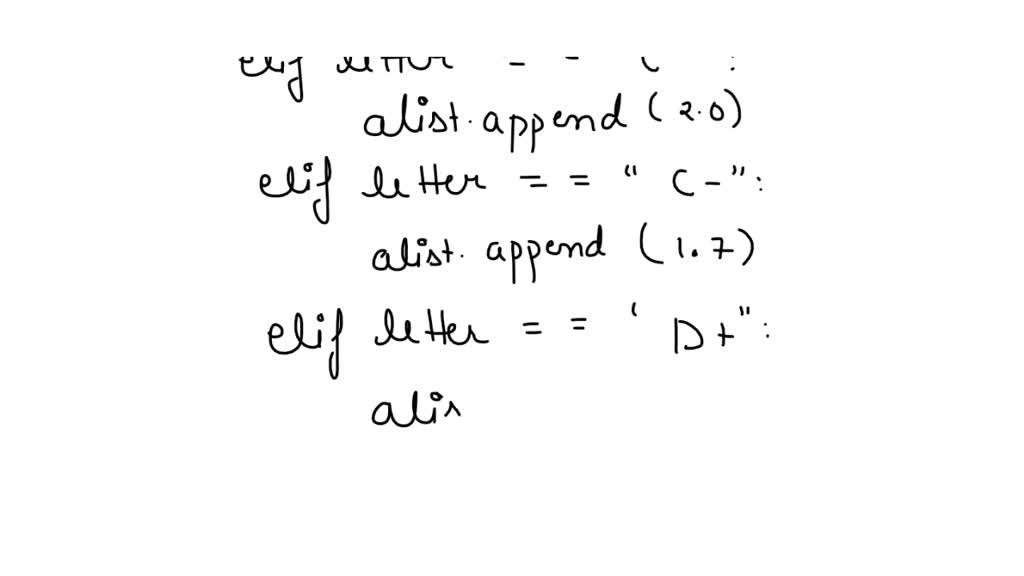 elif letter == "
alist.append (2.0)
elif letter == "C-":
alist.append (1.7)
elif letter == ' D+":
alis